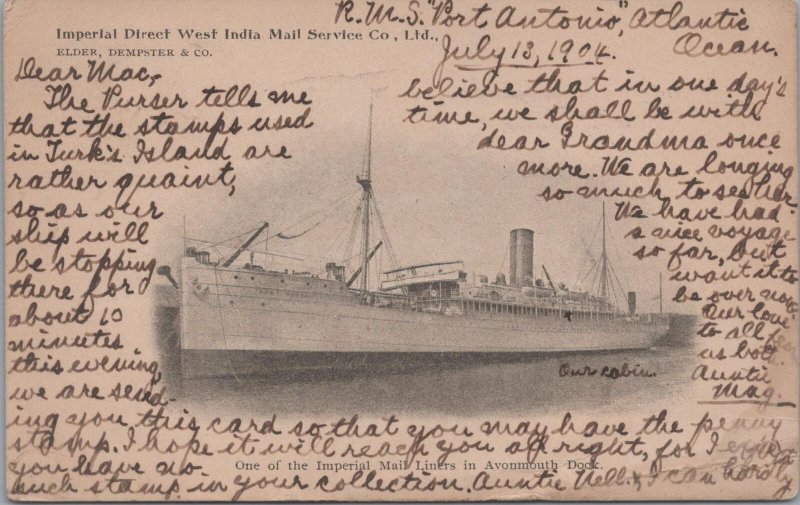 R.M.S. "Port Antonio", Atlantic
Ocean.
July 13, 1904.
Imperial Direct West India Mail Service Co., Ltd.,
ELDER, DEMPSTER & CO.
Dear Mac,-
The Purser tells me
that the stamps used
in Turk's Island are
rather quaint,
so as our
ship will
be stopping
there for
about 10
minutes
this evening
we are send-
ing you this card so that you may have the penny
stamp. I hope it will reach you all right, for I expect
you have no
such stamp in your collection. Auntie Nell & I can hardly
believe that in one day's
time, we shall be with
dear Grandma once
more. We are longing
so much to see her.
We have had
a nice voyage
so far, but
want it to
be over now.
Our love
to all from
us both.
Auntie
Mag.
Our cabin.
One of the Imperial Mail Liners in Avonmouth Dock.